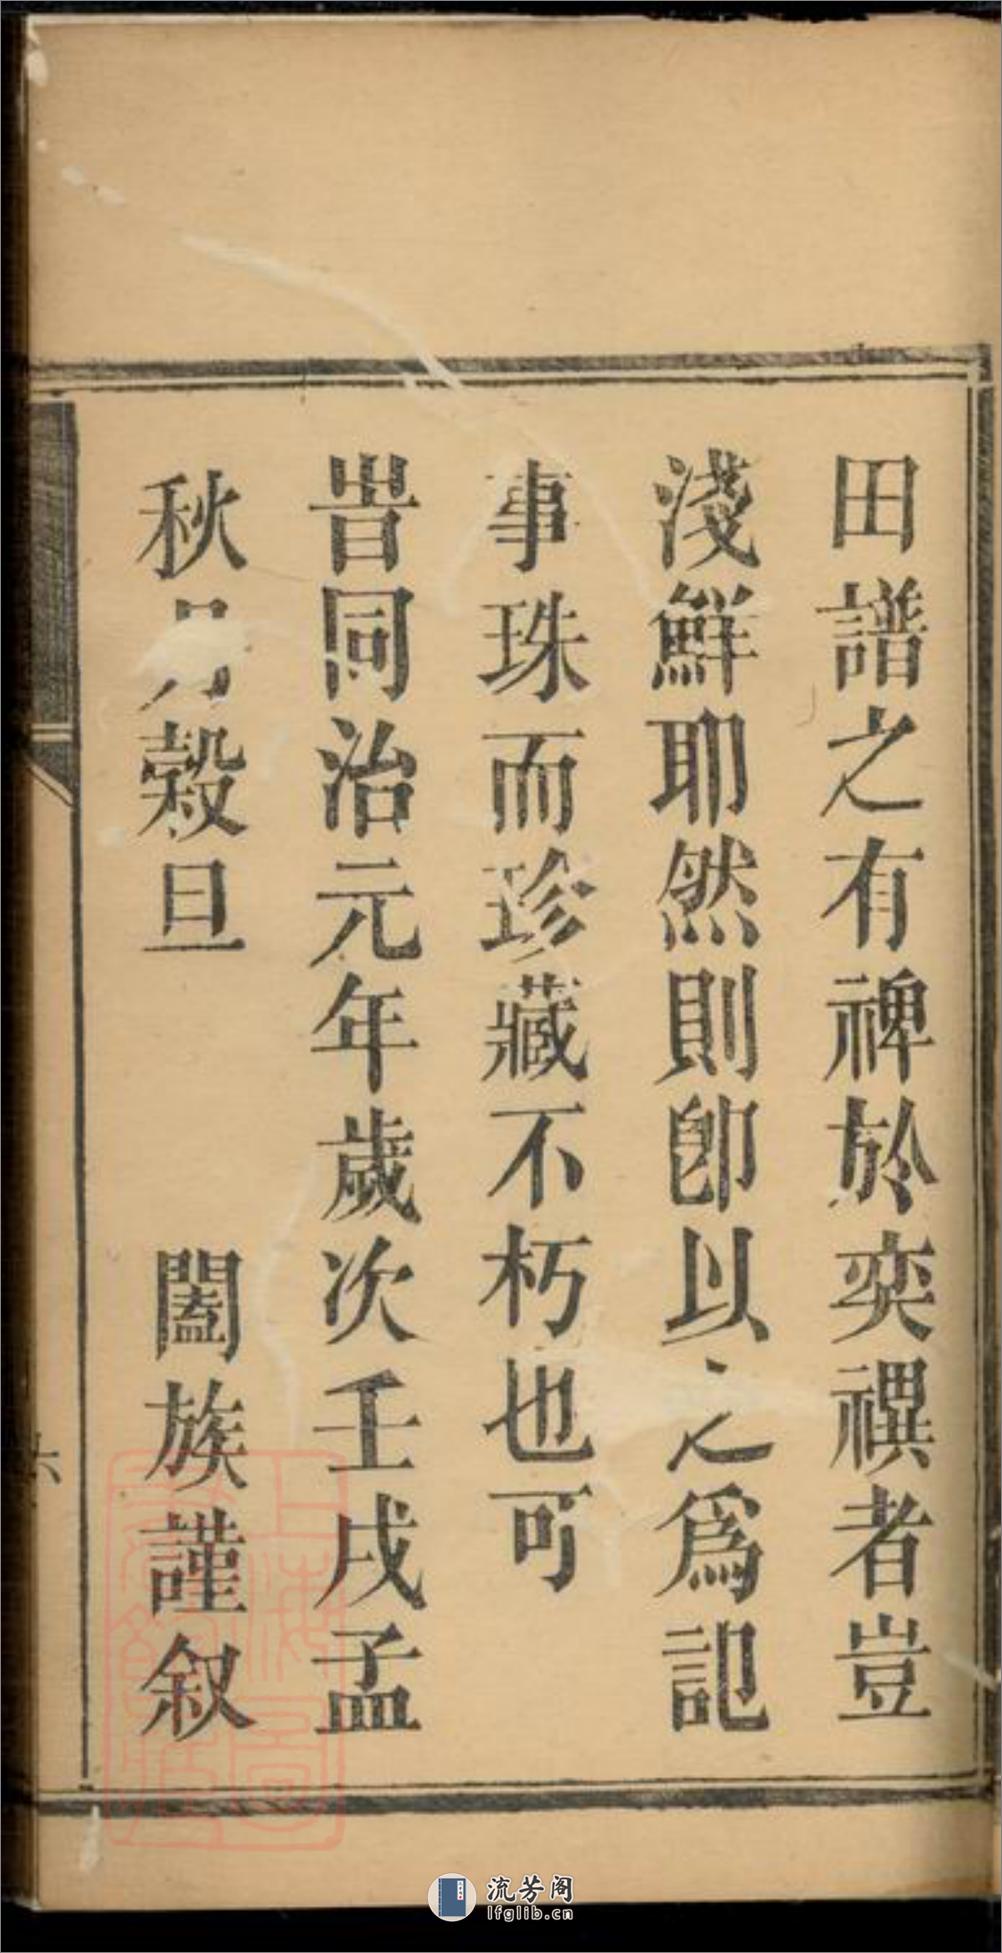 田譜之有裨於奕禩者豈
淺鮮耶然則卽以之爲記
事珠而珍藏不朽也可
旹同治元年歲次壬戌孟
秋月穀旦 闔族謹叙
六
上海圖書館藏
流芳阁
lfglib.cn